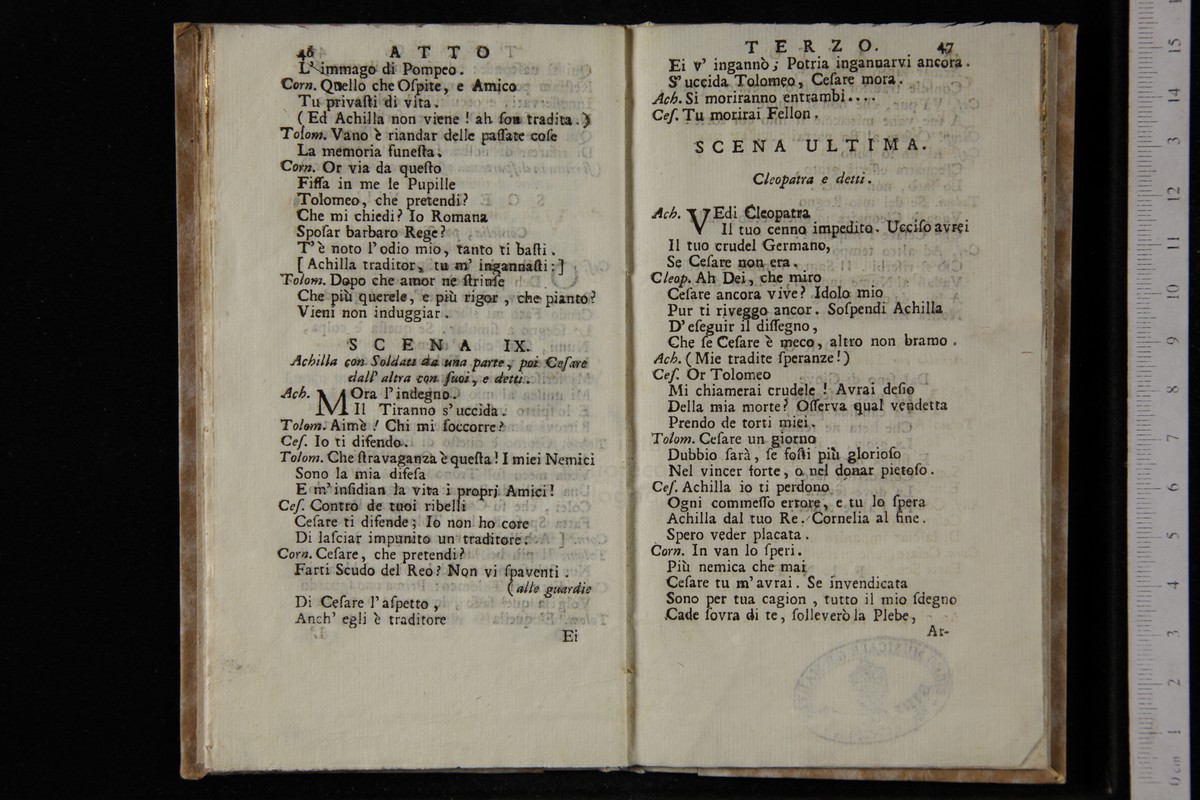 46 ATTO
L'immago di Pompeo.
Corn. Quello che Ospite, e Amico
Tu privasti di vita.
(Ed Achilla non viene! ah son tradita.)
Tolom. Vano è riandar delle passate cose
La memoria funesta.
Corn. Or via da questo
Fissa in me le Pupille
Tolomeo, che pretendi?
Che mi chiedi? Io Romana
Sposar barbaro Rege?
T'è noto l'odio mio, tanto ti basti.
[Achilla traditor, tu m' ingannasti:]
Tolom. Dopo che amor ne strinse
Che più querele, e più rigor, che pianto?
Vieni non induggiar.
SCENA IX.
Achilla con Soldati da una parte, poi Cesare
dall' altra con suoi, e detti.
Ach. MOra l'indegno.
Il Tiranno s'uccida.
Tolom. Aimè! Chi mi soccorre?
Ces. Io ti difendo.
Tolom. Che stravaganza è questa! I miei Nemici
Sono la mia difesa
E m'insidian la vita i proprj Amici!
Ces. Contro de tuoi ribelli
Cesare ti difende; Io non ho core
Di lasciar impunito un traditore.
Corn. Cesare, che pretendi?
Farti Scudo del Reo? Non vi spaventi.
(alle guardie
Di Cesare l'aspetto,
Anch' egli è traditore
Ei
TERZO. 47
Ei v' ingannò; Potria ingannarvi ancora.
S'uccida Tolomeo, Cesare mora.
Ach. Si moriranno entrambi....
Ces. Tu morirai Fellon.
SCENA ULTIMA.
Cleopatra e detti.
Ach. VEdi Cleopatra
Il tuo cenno impedito. Uccisoavrei
Il tuo crudel Germano,
Se Cesare non era.
Cleop. Ah Dei, che miro
Cesare ancora vive? Idolo mio
Pur ti riveggo ancor. Sospendi Achilla
D'eseguir il dissegno,
Che se Cesare è meco, altro non bramo.
Ach. (Mie tradite speranze!)
Ces. Or Tolomeo
Mi chiamerai crudele! Avrai desio
Della mia morte? Osserva qual vendetta
Prendo de torti miei.
Tolom. Cesare un giorno
Dubbio sarà, se fosti più glorioso
Nel vincer forte, o nel donar pietoso.
Ces. Achilla io ti perdono
Ogni commesso errore, e tu lo spera
Achilla dal tuo Re. Cornelia al fine.
Spero veder placata.
Corn. In van lo speri.
Più nemica che mai
Cesare tu m'avrai. Se invendicata
Sono per tua cagion, tutto il mio sdegno
Cade sovra di te, solleverò la Plebe,
Ar-